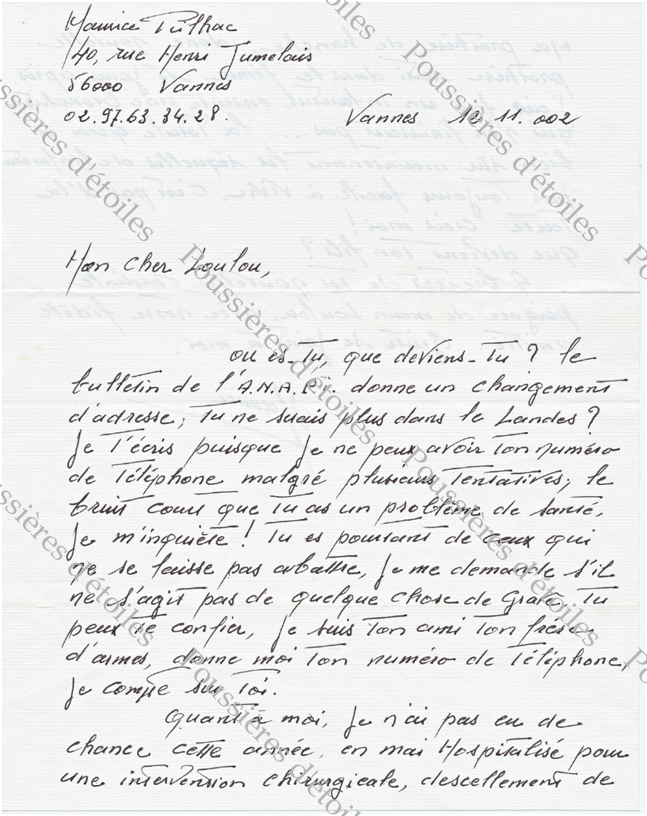 Maurice Puilhac
40, rue Henri Jumelais
56000 Vannes
02.97.63.34.28.
Vannes 12 11.002
Mon cher Loulou,
où es-tu, que deviens-tu ? le
bulletin de l'A.N.A.P.I. donne un changement
d'adresse, tu ne serais plus dans le Landes ?
Je t'écris puisque je ne peux avoir ton numéro
de téléphone malgré plusieurs tentatives, le
bruit court que tu as un problème de santé,
je m'inquiète ! Tu es pourtant de ceux qui
ne se laisse pas abattre, je me demande s'il
ne s'agit pas de quelque chose de grave, tu
peux te confier, je suis ton ami ton frère
d'armes, donne moi ton numéro de téléphone,
je compte sur toi.
Quant à moi, je n'ai pas eu de
chance cette année, en mai Hospitalisé pour
une intervention chirurgicale, descellement de
Poussières d'étoiles